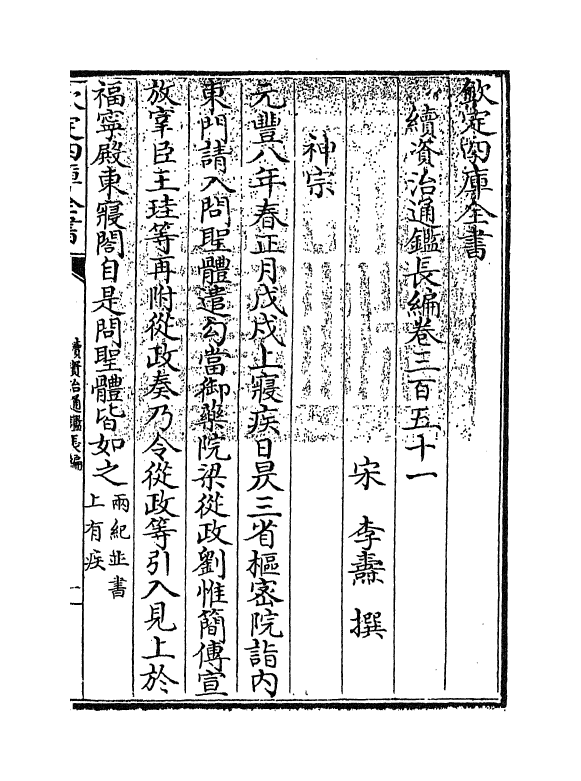 欽定四庫全書
續資治通鑑長編卷三百五十一
宋 李燾 撰
神宗
元豐八年春正月戊戌上寢疾日昃三省樞密院詣内
東門請入問聖體遣勾當御藥院梁從政劉惟簡傅宣
放宰臣王珪等再附從政奏乃令從政等引入見上於
福寧殿東寢閣自是問聖體皆如之
兩紀並書
上有疾
欽定四庫全書
續資治通鑑長編
一